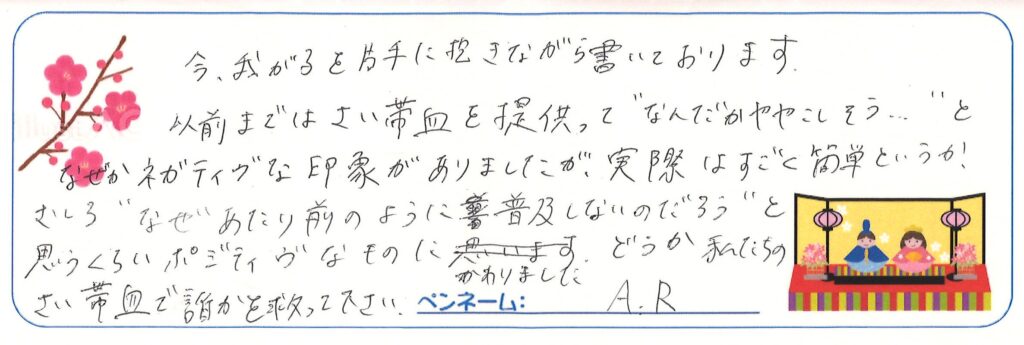 今、我が子を片手に抱きながら書いております.
以前まではさい帯血を提供って“なんだかややこしそう…”と
なぜかネガティヴな印象がありましたが、実際はすごく簡単というか、
むしろ“なぜ”あたり前のように普及しないのだろう“と
思うくらいポジティヴなものに思います. どうか 私たちの
かわりました
さい帯血で誰かを救って下さい. ペンネーム: A.R